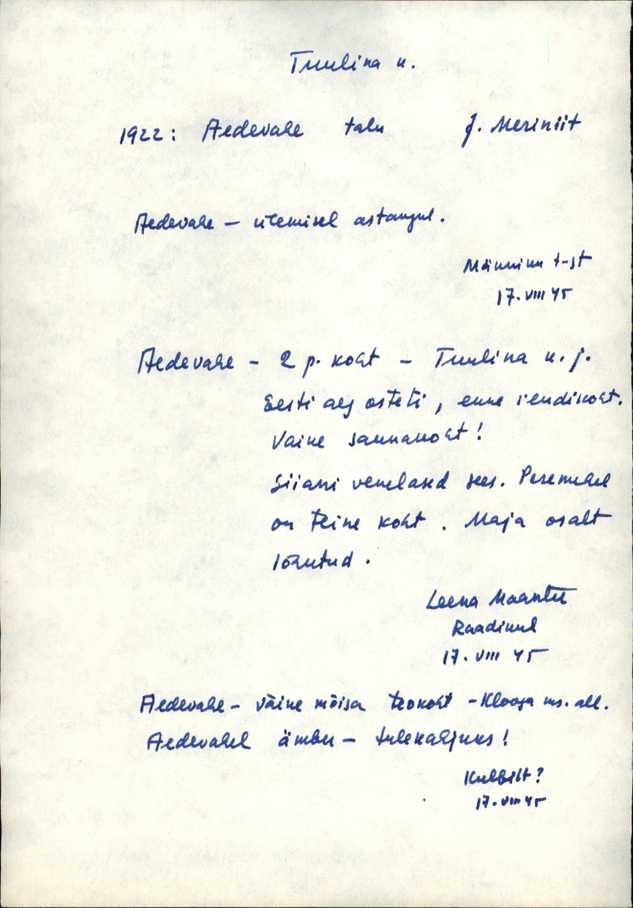 Tuulina n.
1922: Aedevahe talu J. Meriniit
Aedevahe – ülemisel astangul.
Männiku t-st
17. VIII 45
Aedevahe – 2 p. koht – Tuulina n. j.
Eesti aeg osteti, enne rendikoht.
Väine saunakoht!
Siiani venelased sees. Peremehel
on teine koht. Maja osalt
lõhutud.
Leena
Raadikul
17. VIII 45
Aedevahe – väine mõisa teokoht – Klooga ms. all.
Aedevahel ämber – tulekahjuks!
17. VIII 45